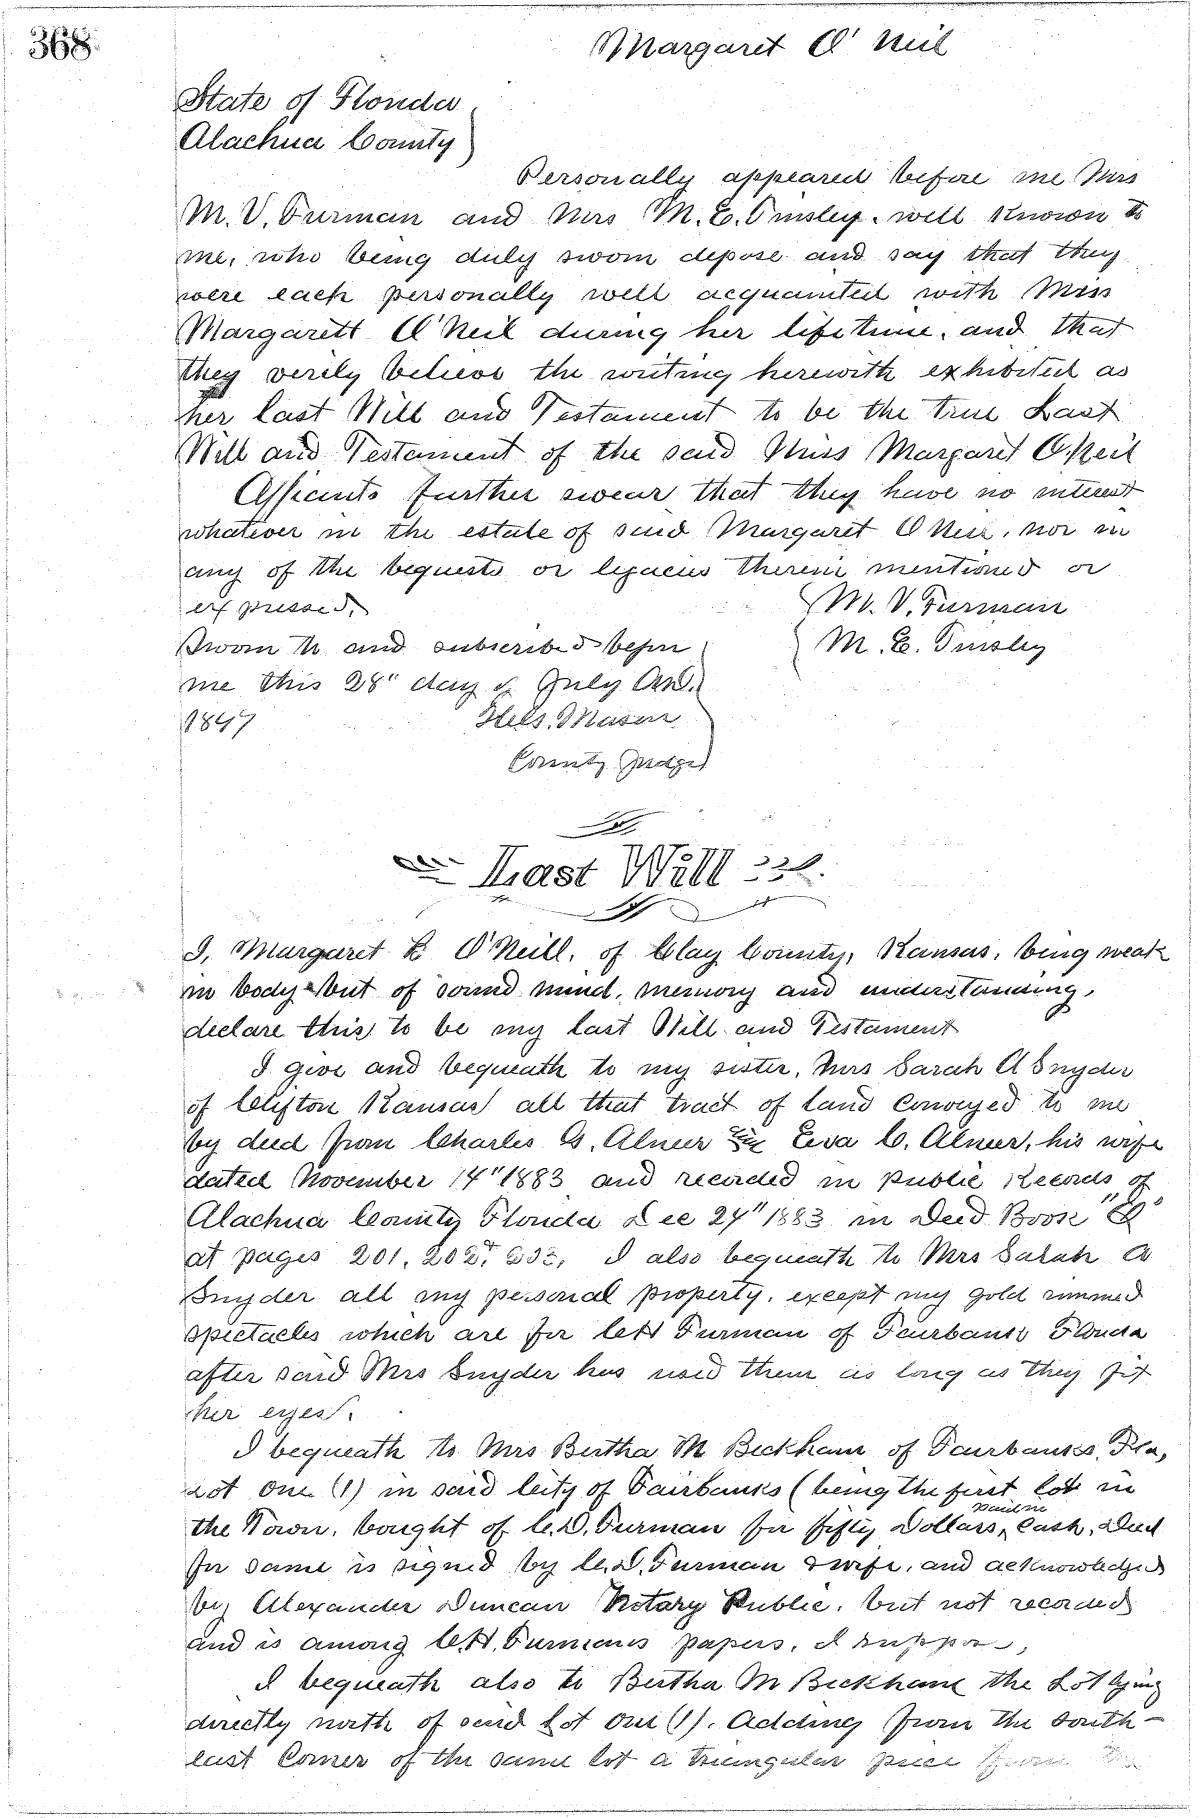 368
Margaret O' Neil
State of Florida
Alachua County
Personally appeared before me Mrs
M. V. Furman and Mrs M. E. Tinsley. well known to
me, who being duly sworn depose and say that they
were each personally well acquainted with Miss
Margarett O'Neil during her lifetime, and that
they verily believe the writing herewith exhibited as
her last Will and Testament to be the true Last
Will and Testament of the said Miss Margaret O.Neil
Affiants further swear that they have no interest
whatever in the estate of said Margaret O Neil, nor in
any of the bequests or legacies therein mentioned or
expressed.
M. V. Furman
Sworn to and subscribed before
M. E. Tinsley
me this 28" day of July A.D.
18
Mason
County Judge
Last Will
I, Margaret O'Neill, of Clay County, Kansas, being weak
in body but of sound mind, memory and understanding,
declare this to be my last Will and Testament
I give and bequeath to my sister, Mrs Sarah A Snyder
of Clifton Kansas all that tract of land conveyed to me
by deed from Charles G. Eva C. his wife
dated November 14" 1883 and recorded in public Records of
Alachua County Florida Dec 24" 1883 in Deed Book
at pages 201, 202, I also bequeath to Mrs Sarah A
Snyder all my personal property, except my gold rimmed
spectacles which are for C.H Furman of Fairbanks Florida
after said Mrs Snyder has used them as long as they fit
her eyes.
I bequeath to Mrs Bertha M Beckham of Fairbanks, Fla,
Lot one (1) in said City of Fairbanks (being the first lot in
the Town, bought of C.D. Furman for fifty Dollars, paid in Cash, Deed
for same is signed by C.D. Furman & wife, and acknowledged
by Alexander Duncan Notary Public, but not recorded
and is among C.H. Furmans papers, I suppose,
I bequeath also to Bertha M Beckham the Lot lying
directly north of said Lot one (1). Adding from the south-
east Corner of the same lot a triangular piece from the